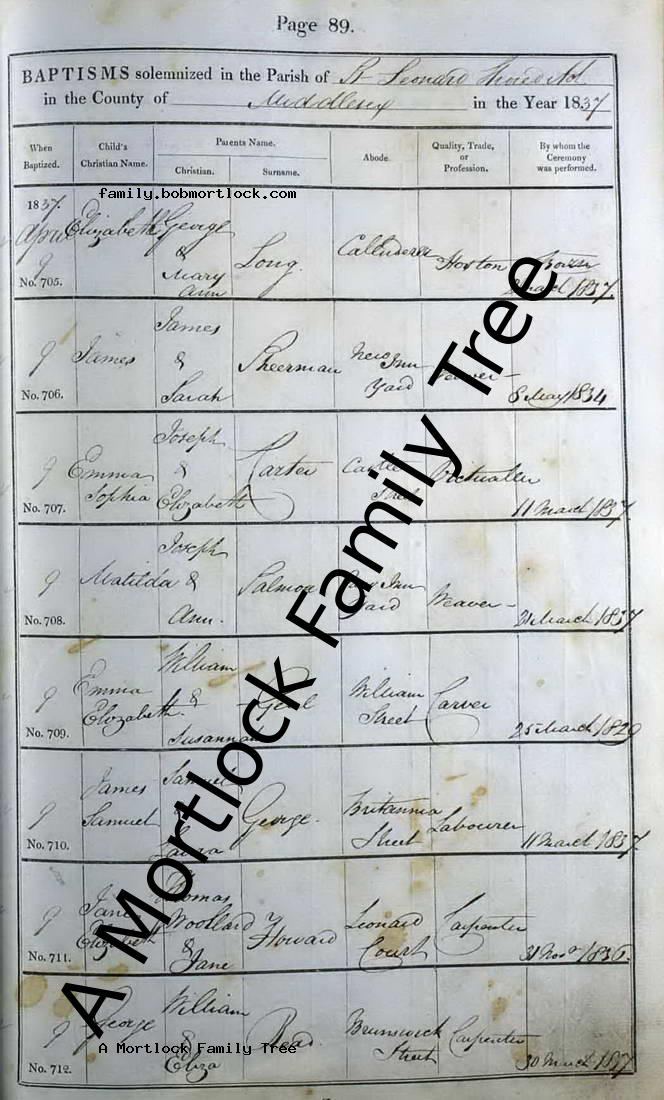 Page 89.
BAPTISMS solemnized in the Parish of St Leonard Shoreditch
in the County of Middlesex in the Year 1837
When Baptized.
Child's Christian Name.
Parents Name.
Christian.
Surname.
Abode.
Quality, Trade, or Profession.
By whom the Ceremony was performed.
family.bobmortlock.com
1837.
April 9
No. 705.
Elizabeth
George & Mary Ann
Long.
2 March 1837.
9
No. 706.
James
James & Sarah
Sheerman
New Inn Yard
8 May 1834
9
No. 707.
Emma Sophia
Joseph & Elizabeth
Carter
Castle Street
Victualler
11 March 1837
9
No. 708.
Matilda
Joseph & Ann.
Salmon
New Inn Yard
Weaver
March 1837
9
No. 709.
Emma Elizabeth.
William & Susannah
William Street
Carver
25 March 1829
9
No. 710.
James Samuel
Samuel & Laura
George.
Britannia Street
Labourer
11 March 1837
9
No. 711.
Jane Elizabeth
Thomas Woollard & Jane
Howard
Leonard Court
Carpenter
Novr 1836.
9
No. 712.
George
William & Eliza
Read
Brunswick Street
Carpenter
30 March 1837
A Mortlock Family Tree
A Mortlock Family Tree